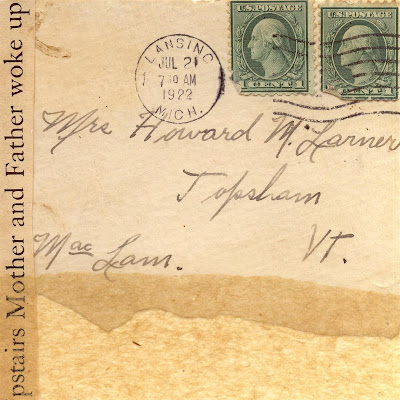 pstairs Mother and Father woke up
LANSING
JUL 21
7 30 AM
1
1922
MICH.
U.S. POSTAGE
1 CENT 1
U.S. POSTAGE
1 CENT
Mrs Howard M. Larner
Topsham
Mac Lam.
Vt.